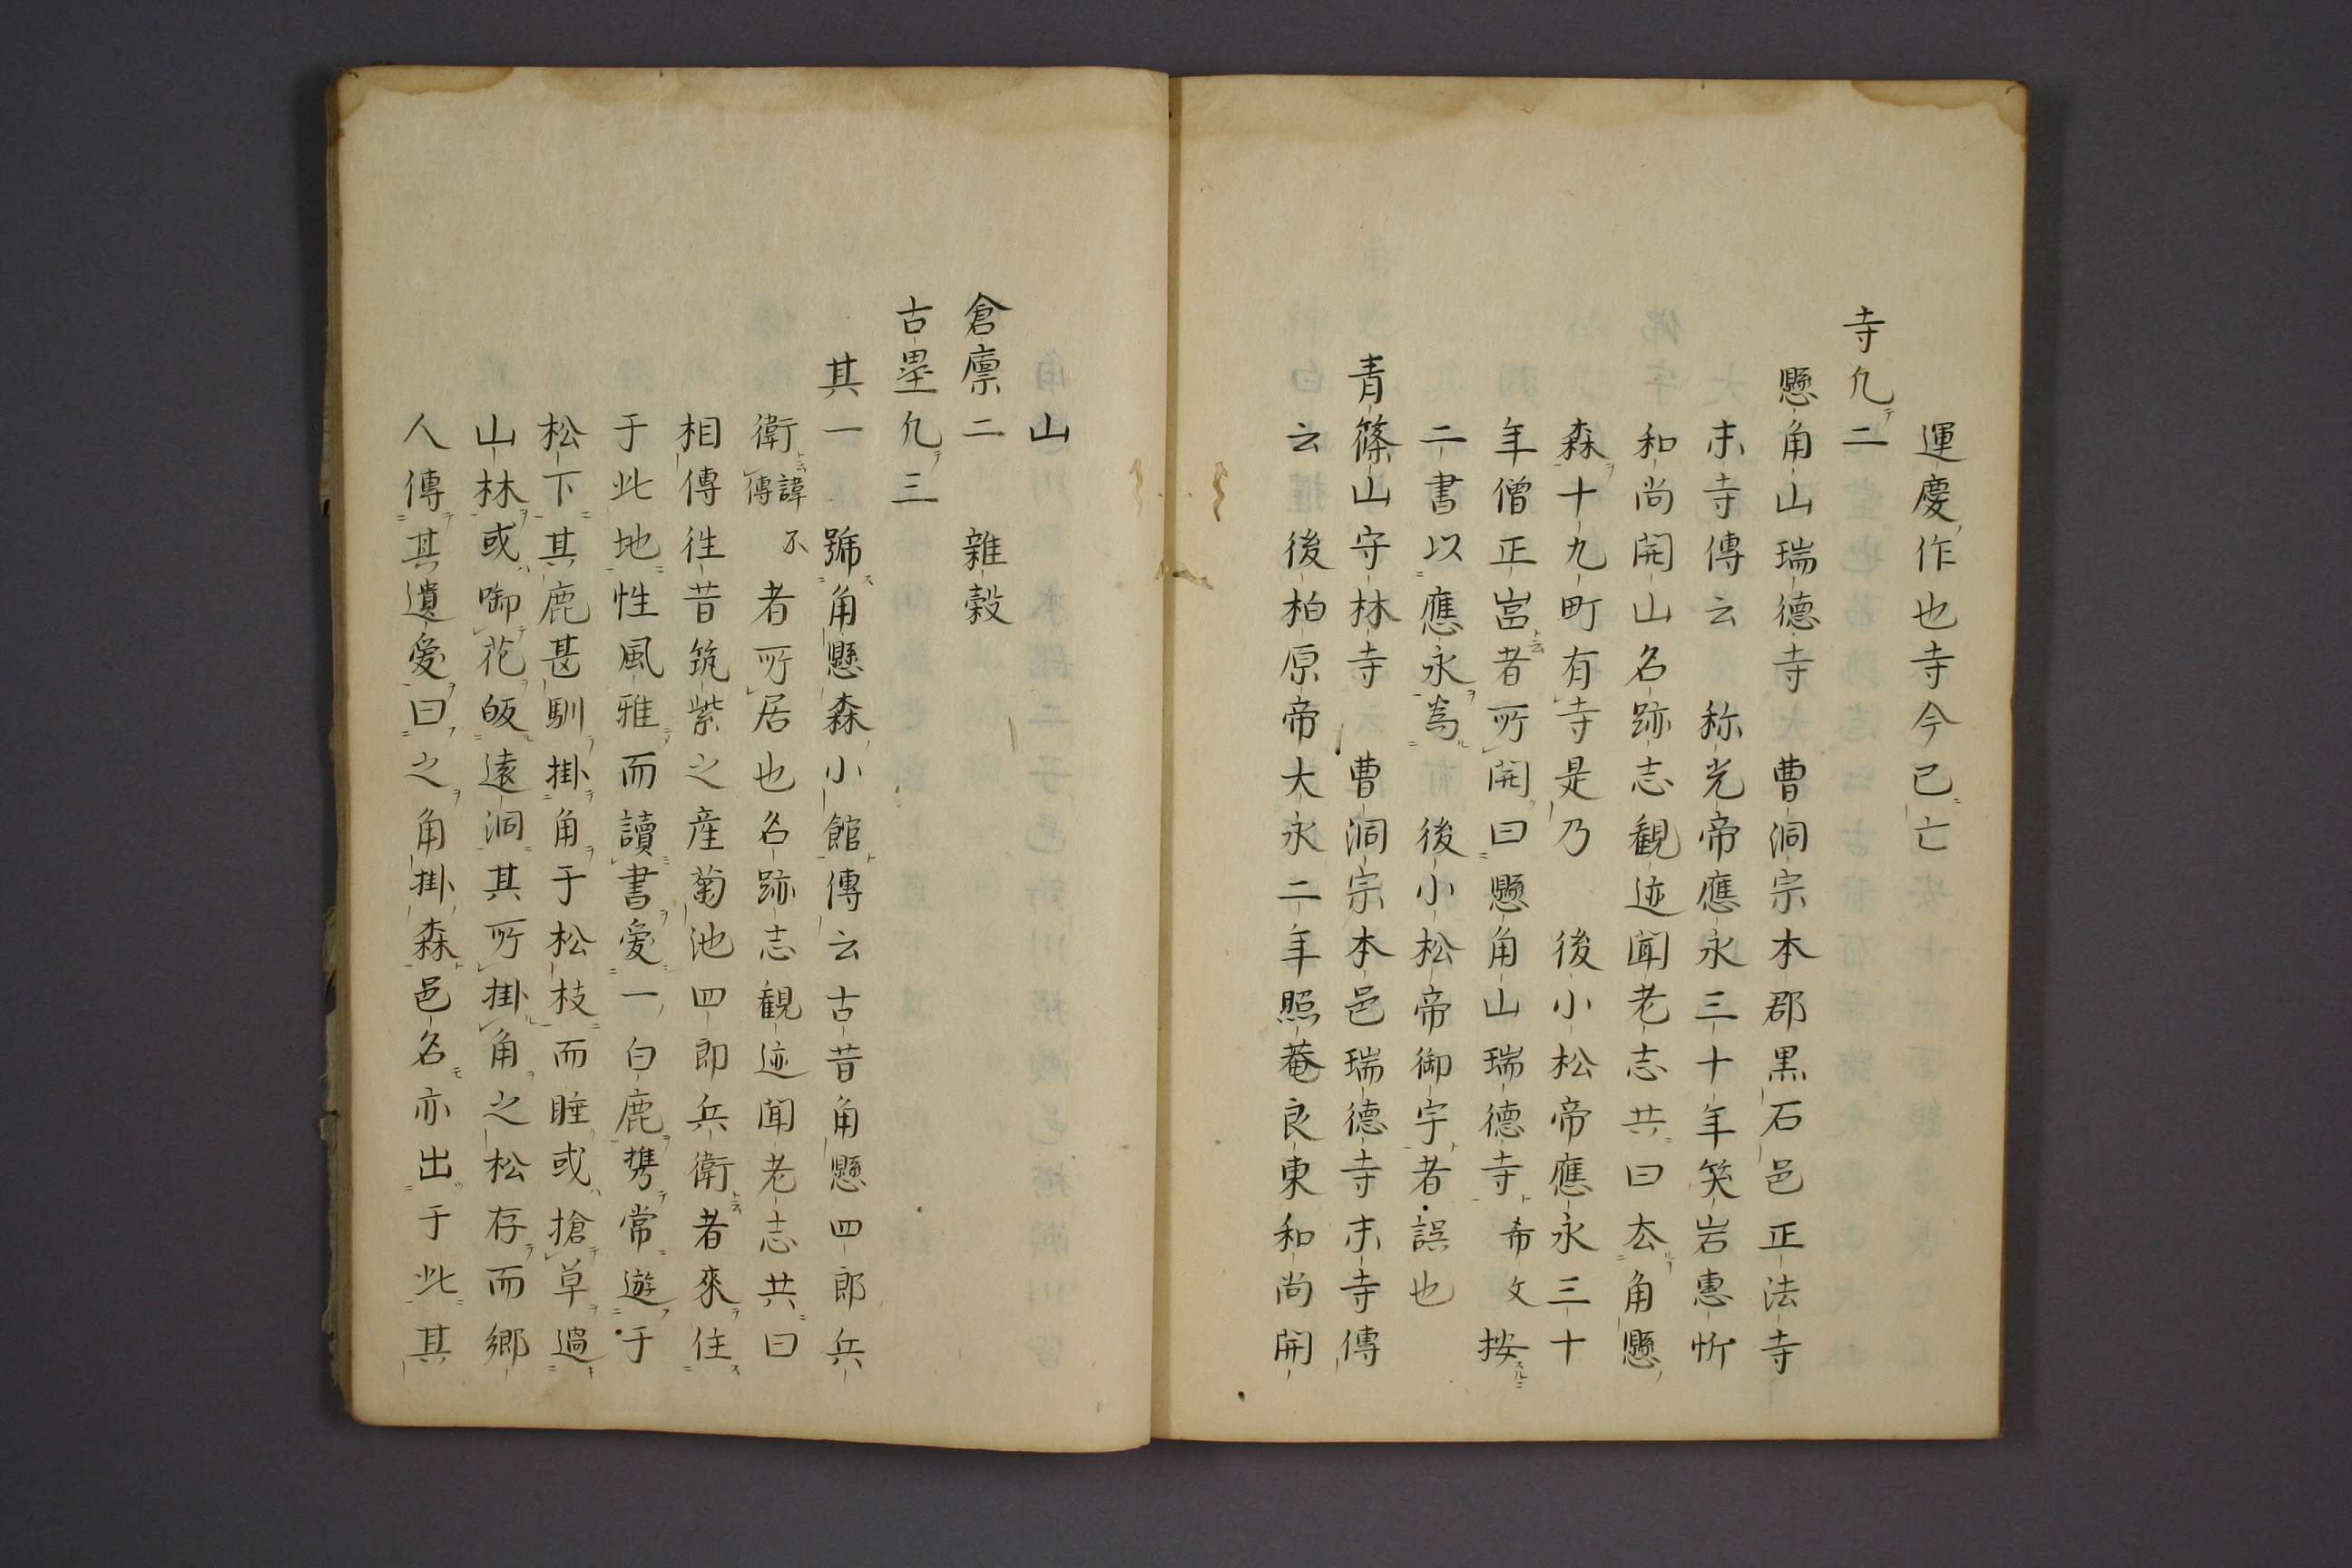 運慶作也寺今已亡
寺凢二
懸角山瑞德寺 曹洞宗本郡黒石邑正法寺
末寺傳云 称光帝應永三十年笑岩惠忻
和尚開山名跡志觀迹聞老志共曰厺角懸
森十九町有寺是乃 後小松帝應永三十
年僧正岧者所開曰懸角山瑞德寺 希文按
二書以應永為 後小松帝御宇者誤也
青篠山守林寺 曹洞宗本邑瑞德寺末寺傳
云 後柏原帝大永二年照菴良東和尚開
山
倉廪二 雜穀
古壘凢三
其一 號角懸森小館傳云古昔角懸四郎兵
衛諱不傳者所居也名跡志觀迹聞老志共曰
相傳徃昔筑紫之産菊池四郎兵衛者來住
于此地性風雅而讀書愛一白鹿携常遊于
松下其鹿甚馴掛角于松枝而睡或搶草過
山林或啣花皈遠洞其所掛角之松存而鄉
人傳其遺愛曰之角掛森邑名亦出于此其